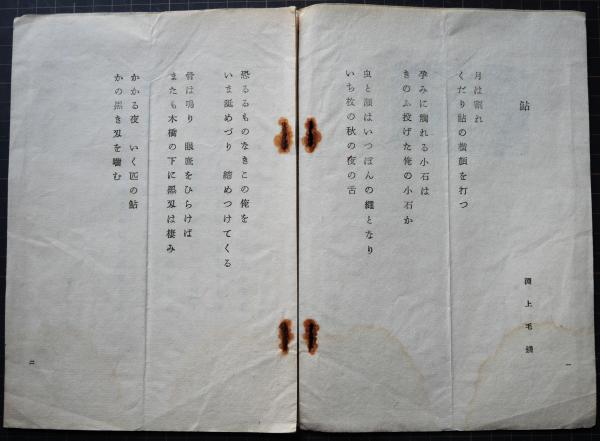 鮎
淵上毛錢
月は割れ
くだり鮎の横顔を打つ
孕みに觸れる小石は
きのふ投げた俺の小石か
虫と顔はいつぽんの縄となり
いち枚の秋の夜の舌
一
恐るるものなきこの俺を
いま舐めづり 縮めつけてくる
骨は鳴り 眼底をひらけば
またも木橋の下に黑刄は棲み
かかる夜 いく匹の鮎
かの黑き刄を嚙む
二